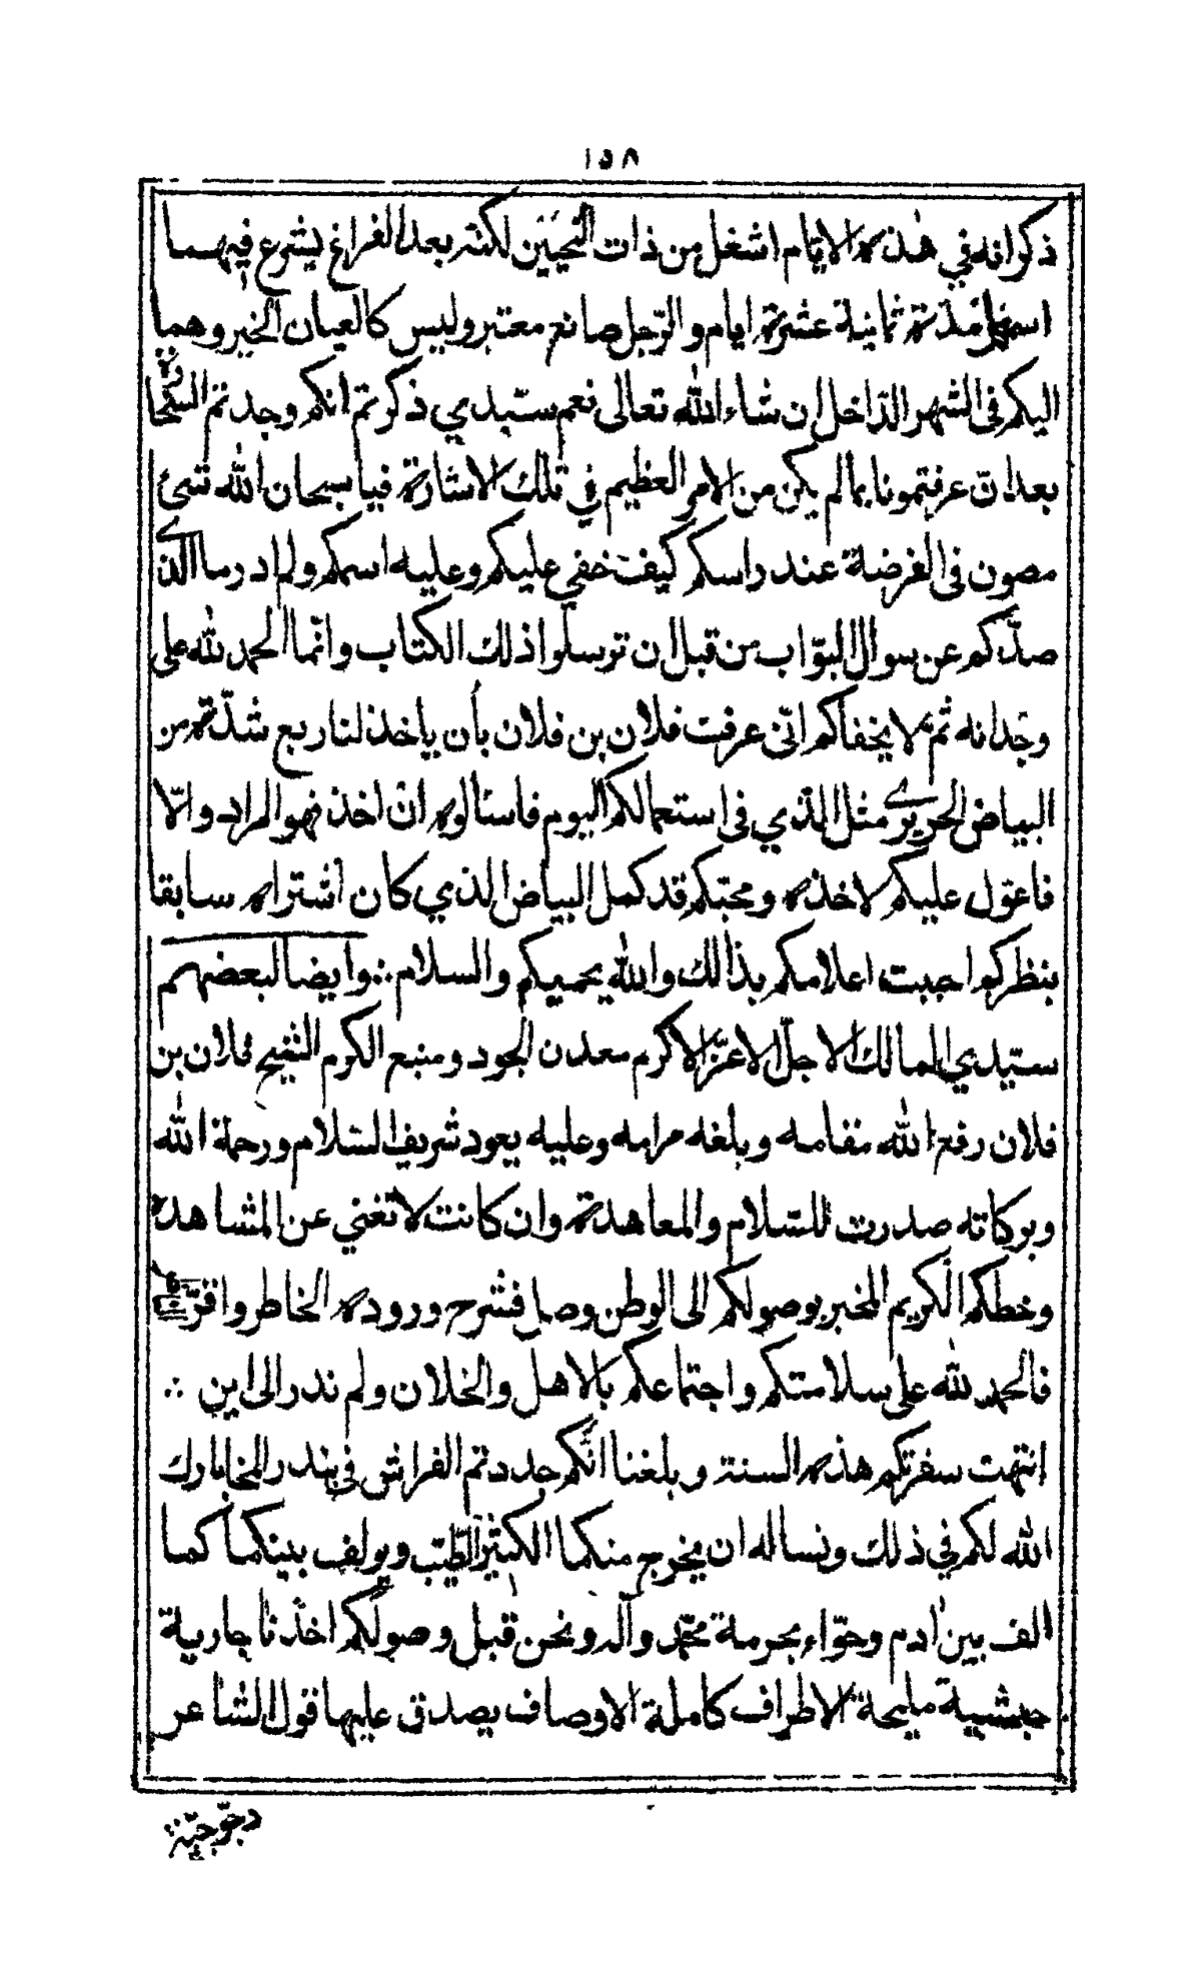 ١٥٨
ذكر انه في هذه الايام اشغل من ذات النحيين لكنه بعد الفراغ يشرع فيهما
مدة ثمانية عشرة ايام والرّجل صانع معتبر وليس كالعيان الخبر وهما
اليكم فى الشهر الدّاخل ان شاء الله تعالى نعم سيّدي ذكرتم انكم وجدتم
بعد ان عرفتمونا بمالم يكن من الامر العظيم في تلك الاشارة فيا سبحان الله شئ
مصون فى الغرضة عند راسكم كيف خفي عليكم وعليه اسمكم ولم ادر ما الذي
صدّكم عن سوال البوّاب من قبل ان ترسلوا ذلك الكتاب وانّما الحمد لله على
وجدانه ثمّ لا يخفاكم انّى عرفت فلان بن فلان بأن ياخذ لنا ربع شدّة من
البياض الحريري مثل الذي فى استعمالكم اليوم فاسئالوه ان اخذ فهو المراد والّا
فاعوّل عليكم لاخذه ومحبّكم قد كمل البياض الذي كان اشتراه سابقا
بنظركم احببت اعلامكم بذالك والله يحميكم والسلام ∴ وايضا لبعضهم
سيّدي المالك الاجلّ الاعزّ الاكرم معدن الجود ومنبع الكرم الشيخ فلان بن
فلان رفع الله مقامه وبلغه مرامه وعليه يعود شريف السّلام ورحمة الله
وبركاته صدرت للسّلام والمعاهدة وان كانت لا تغني عن المشاهده
وخطكم الكريم المخبر بوصولكم الى الوطن وصل فشرح وروده الخاطر واقرّ
فالحمد لله على سلامتكم واجتماعكم بالاهل والخلان ولم ندر الى اين ∴
انتهت سفرتكم هذه السنة وبلغنا انّكم جددتم الفراش في بندر المخا بارك
الله لكم في ذلك ونساله ان يخرج منكما الكثير الطّيّب ويولف بينكما كما
الف بين ادم وحوّاء بحرمة محمّد وآله ونحن قبل وصولكم اخذنا جارية
حبشية مليحة الاطراف كاملة الاوصاف يصدق عليها قول الشاعر